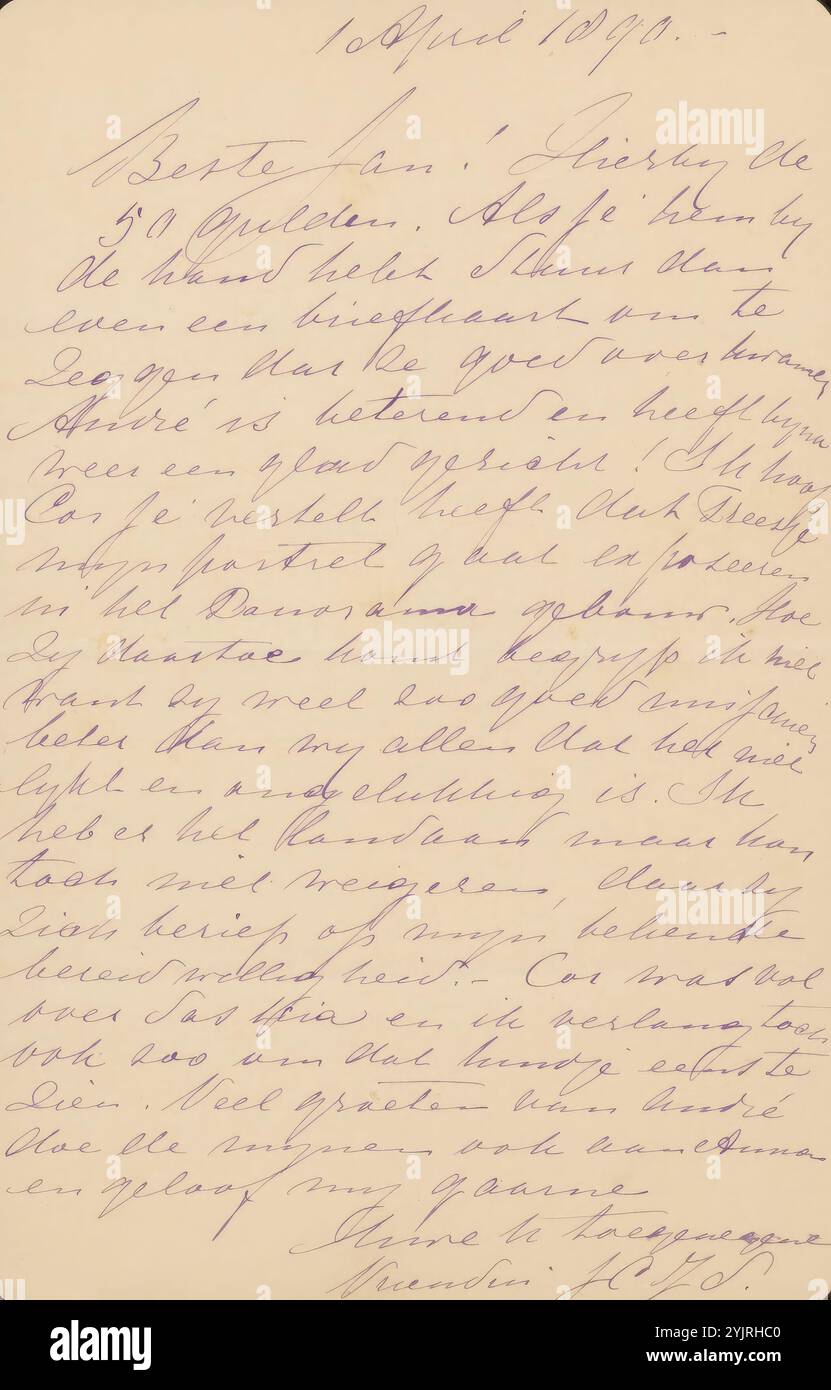 1 April 1890. -
Beste Jan! Hierby de
50 Gulden. Als je hem by
de hand hebt stuur dan
even een briefkaart om te
zeggen dat ze goed over kwamen
André is beterend en heeft byna
weer een glad gezicht! Ik hoop
Cor je vertelt heeft dat Treesje
myn portret gaat exposeeren
in het Panorama gebouw. Hoe
zy daartoe komt begryp ik niet
want zy weet zoo goed
beter dan wy allen dat het niet
lykt en ongelukkig is. Ik
heb er het land aan maar kon
toch niet weigeren, daar zy
zich beriep op myn bekende
bereidwilligheid. - Cor was vol
over Saskia en ik verlang toch
ook zoo om dat kindje eens te
zien. Veel groeten van André
doe de mynen ook aan Anna
en geloof my gaarne
toegenegene
Vriendin
alamy
a
Image ID: 2YJRHC0
www.alamy.com